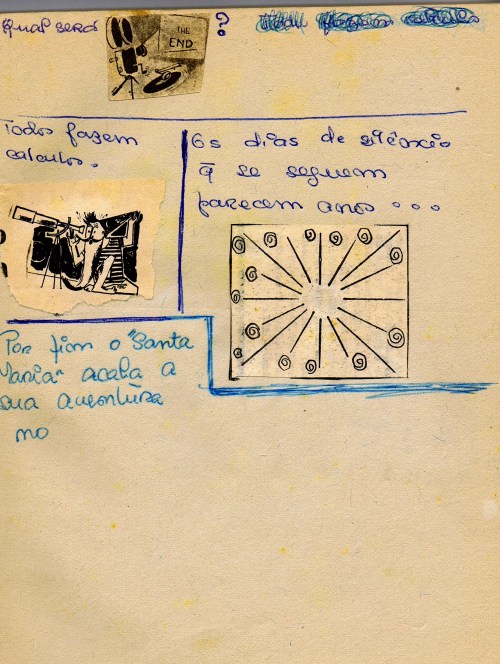 Qual será
THE
END
?
Todos fazem
calculos.
Os dias de silêncio
q̄ se seguem
parecem anos . . .
Por fim o "Santa
Maria" acaba a
sua aventura
no